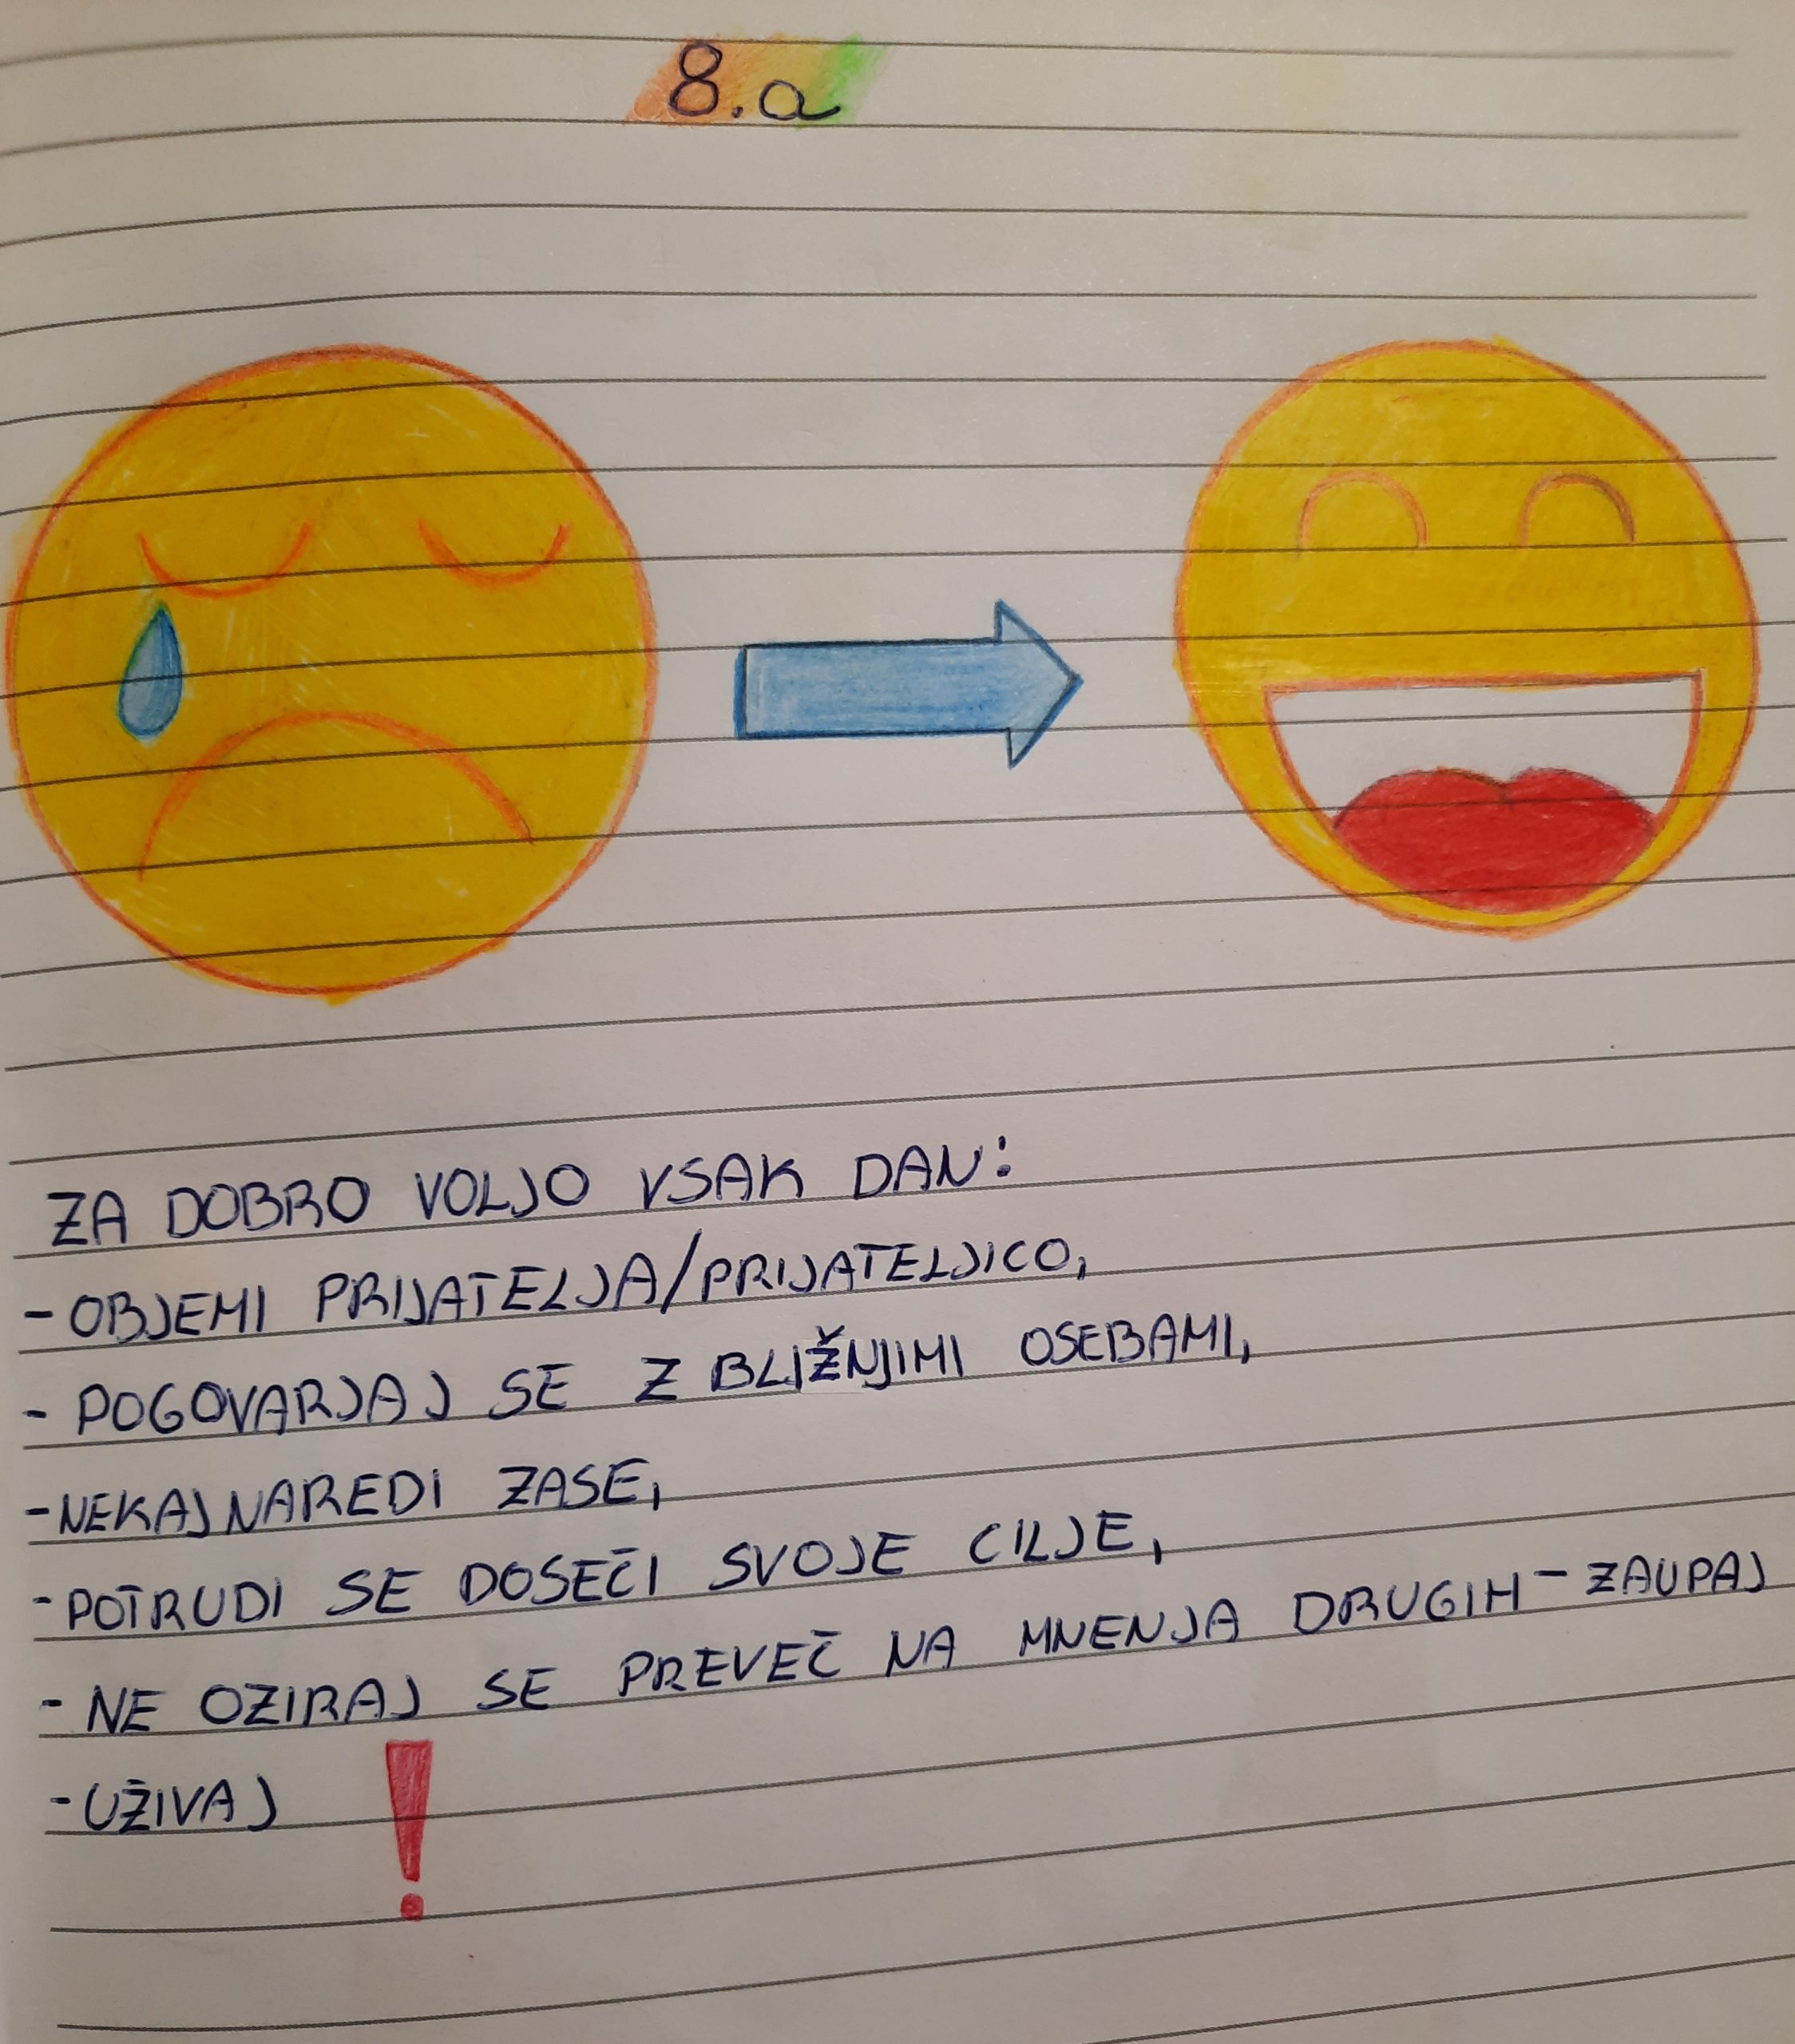 8.a
ZA DOBRO VOLJO VSAK DAN:
- OBJEMI PRIJATELJA/PRIJATELJICO,
- POGOVARJAJ SE Z BLIŽNJIMI OSEBAMI,
- NEKAJ NAREDI ZASE,
- POTRUDI SE DOSEČI SVOJE CILJE,
- NE OZIRAJ SE PREVEČ NA MNENJA DRUGIH - ZAUPAJ
- UŽIVAJ !